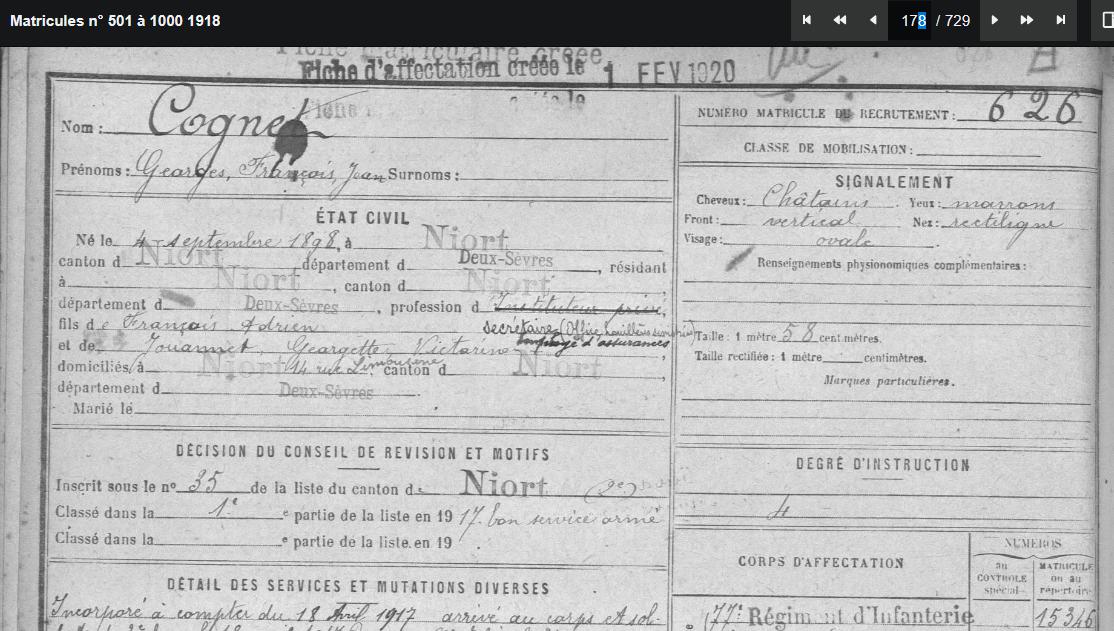 Matricules n° 501 à 1000 1918
178 / 729
Fiche d'affectation créée le 1 FEV 1920
Nom : Cognet
NUMÉRO MATRICULE DU RECRUTEMENT : 626
CLASSE DE MOBILISATION :
Prénoms : Georges, François, Jean Surnoms :
SIGNALEMENT
Cheveux : Châtains Yeux : marrons
Front : vertical Nez : rectiligne
Visage : ovale
Renseignements physionomiques complémentaires :
Taille : 1 mètre 58 centimètres.
Taille rectifiée : 1 mètre centimètres.
Marques particulières.
ÉTAT CIVIL
Né le 4 septembre 1898, à Niort
canton d Niort département d Deux-Sèvres, résidant
à Niort, canton d Niort,
département d Deux-Sèvres, profession d Instituteur privé,
secrétaire (Office houillères
fils de François Adrien employé d'assurances
et de Jouannet, Georgette Victorine,
domiciliés à Niort 14 rue Limousine, canton d Niort,
département d Deux-Sèvres
Marié le
DÉCISION DU CONSEIL DE REVISION ET MOTIFS
Inscrit sous le n° 35 de la liste du canton de Niort (2e)
Classé dans la 1e e partie de la liste en 1917. bon service armé
Classé dans la e partie de la liste en 19
DEGRÉ D'INSTRUCTION
4
DÉTAIL DES SERVICES ET MUTATIONS DIVERSES
Incorporé à compter du 18 Avril 1917 arrivé au corps et sol-
CORPS D'AFFECTATION
NUMÉROS
au CONTROLE spécial.
MATRICULE ou au répertoire
77e Régiment d'Infanterie
15346